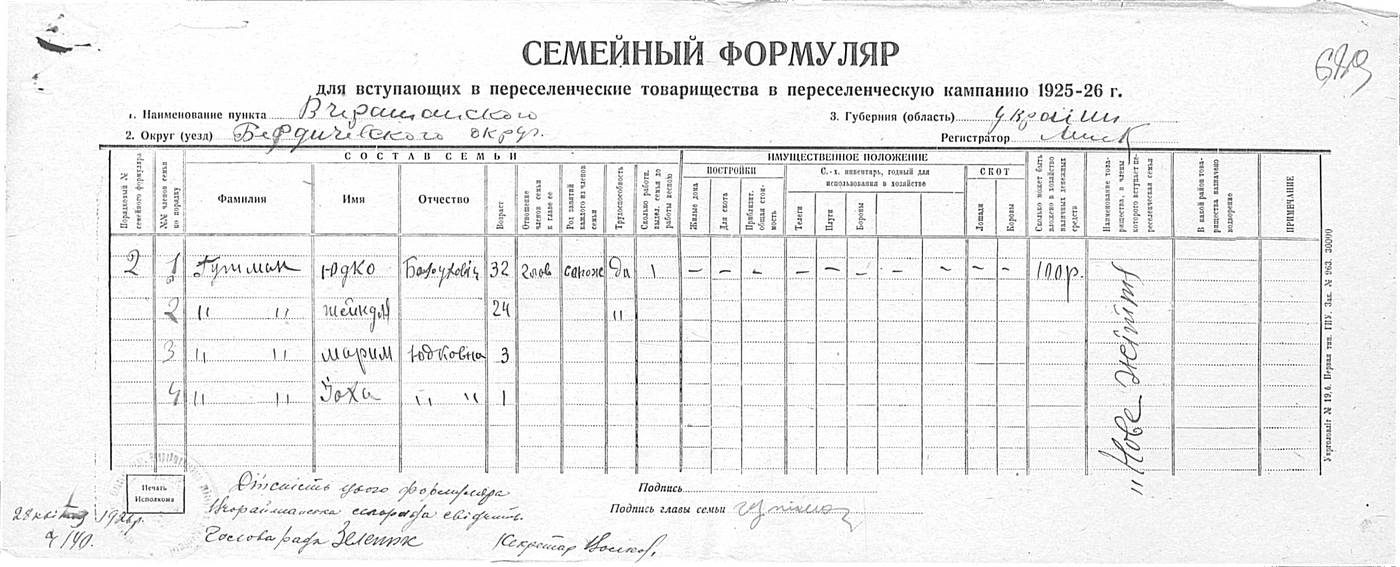 689
СЕМЕЙНЫЙ ФОРМУЛЯР
для вступающих в переселенческие товарищества в переселенческую кампанию 1925-26 г.
1. Наименование пункта 3. Губерния (область) України
2. Округ (уезд) Бердичевского округ. Регистратор
СОСТАВ СЕМЬИ ИМУЩЕСТВЕННОЕ ПОЛОЖЕНИЕ
ПОСТРОЙКИ С.-х. инвентарь, годный для использования в хозяйстве СКОТ
Порядковый № семейного формуляра №№ членов семьи по порядку Фамилия Имя Отчество Возраст Отношение членов семьи к главе ее Род занятий каждого из членов семьи Трудоспособность Сколько работн. выдел. семья до работы весною Жилые дома Для скота Приблизит. общая стоимость Телеги Плуги Бороны Лошади Коровы Сколько может быть вложено в хозяйство наличных денежных средств Наименование товарищества, в члены которого вступает переселенческая семья В какой район товарищества назначено водворение ПРИМЕЧАНИЕ
2 1 Гутман Юдко Борухович 32 глов сапож да 1 – – – – – – – – – – – 100 р. "Нове життя
2 " " Жейндля 24 "
3 " " Марим Юдковна 3
4 " " Зоха " " 1
Печать Исполкома
Дійсність цього формуляра
сільрада свідчить.
Голова ради Зеленюк Секретар
28 1926 р.
№ 140.
Подпись
Подпись главы семьи
Укрголовліт № 19,4. Первая тип. ГПУ. Зак. № 963. 20000